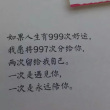 如果人生有999次好运，
我愿将997次分给你，
两次留给我自己。
一次是遇见你，
一次是永远陪你。